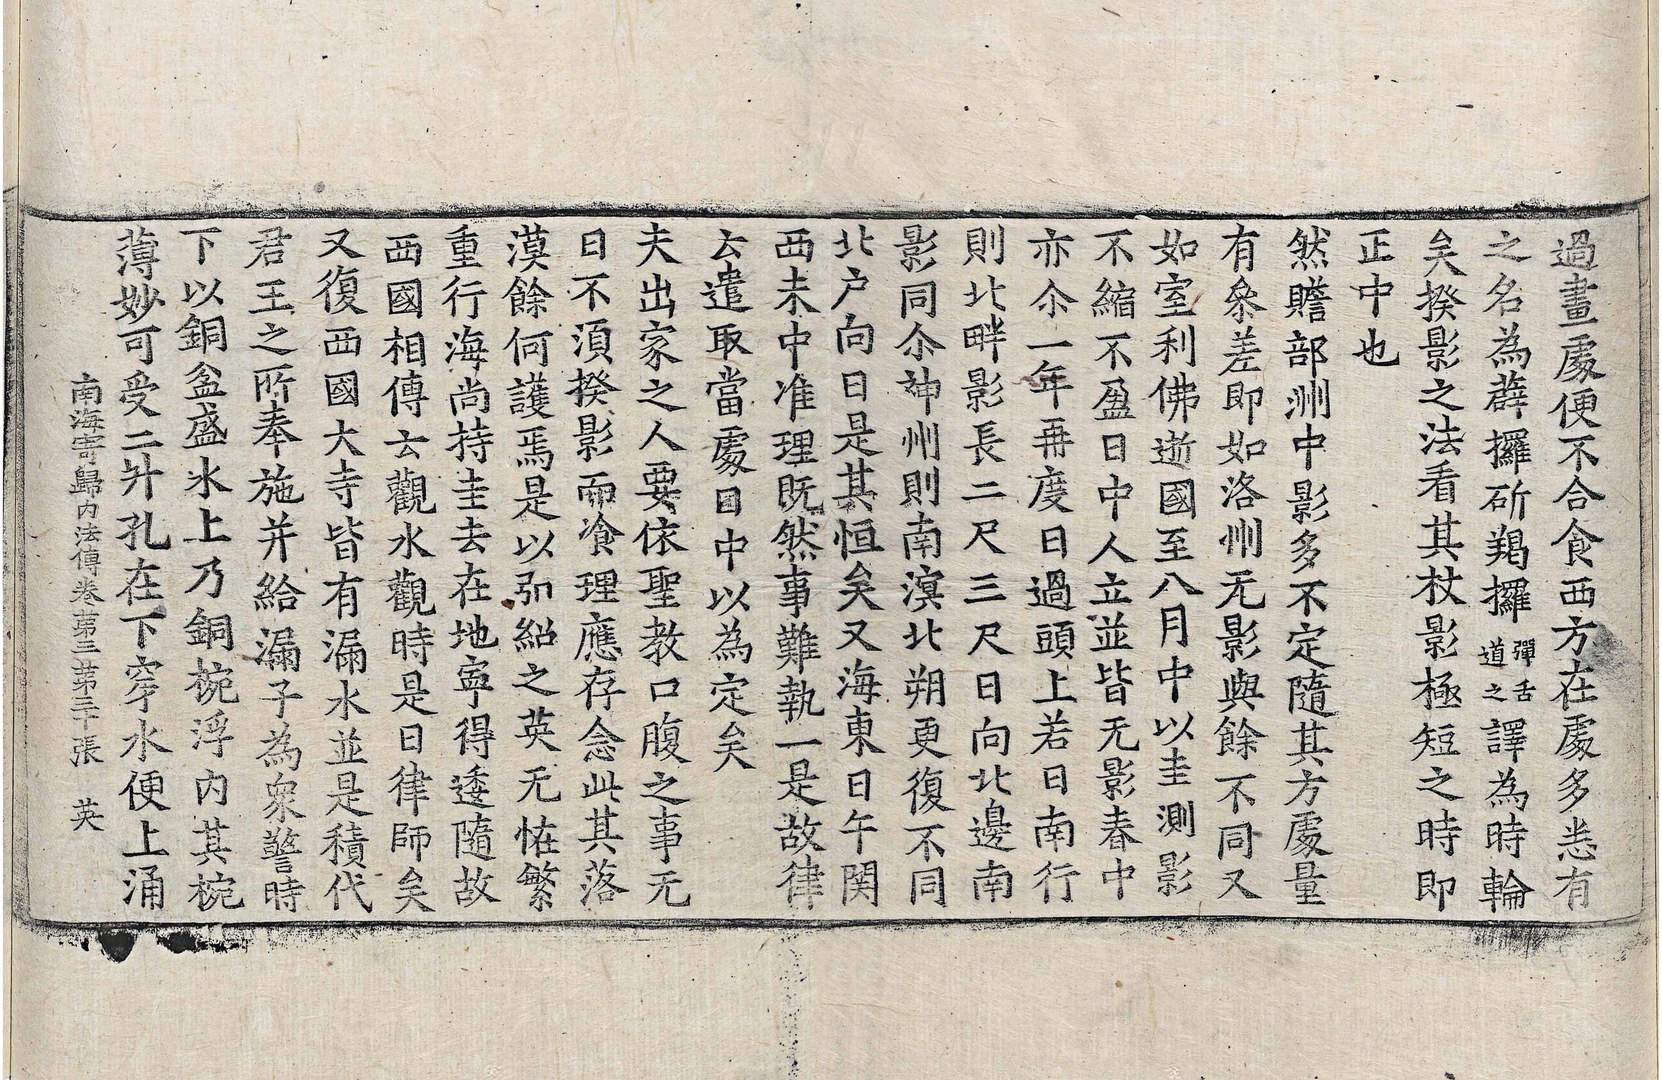 過畫處便不合食西方在處多悉有
之名為薜攞斫羯攞彈舌道之譯為時輪
矣揆影之法看其杖影極短之時即
正中也
然贍部洲中影多不定隨其方處量
有參差即如洛州无影與餘不同又
如室利佛逝國至八月中以圭測影
不縮不盈日中人立並皆无影春中
亦尒一年再度日過頭上若日南行
則北畔影長二尺三尺日向北邊南
影同尒神州則南溟北朔更復不同
北戶向日是其恒矣又海東日午関
西未中准理既然事難執一是故律
云遣取當處日中以為定矣
夫出家之人要依聖教口腹之事无
日不須揆影而飡理應存念此其落
漠餘何護焉是以弘紹之英无恠繁
重行海尚持圭去在地寧得逶隨故
西國相傳云觀水觀時是曰律師矣
又復西國大寺皆有漏水並是積代
君王之所奉施并給漏子為衆警時
下以銅盆盛水上乃銅椀浮內其椀
薄妙可受二升孔在下穿水便上涌
南海寄歸內法傳卷第三 第二十張 英